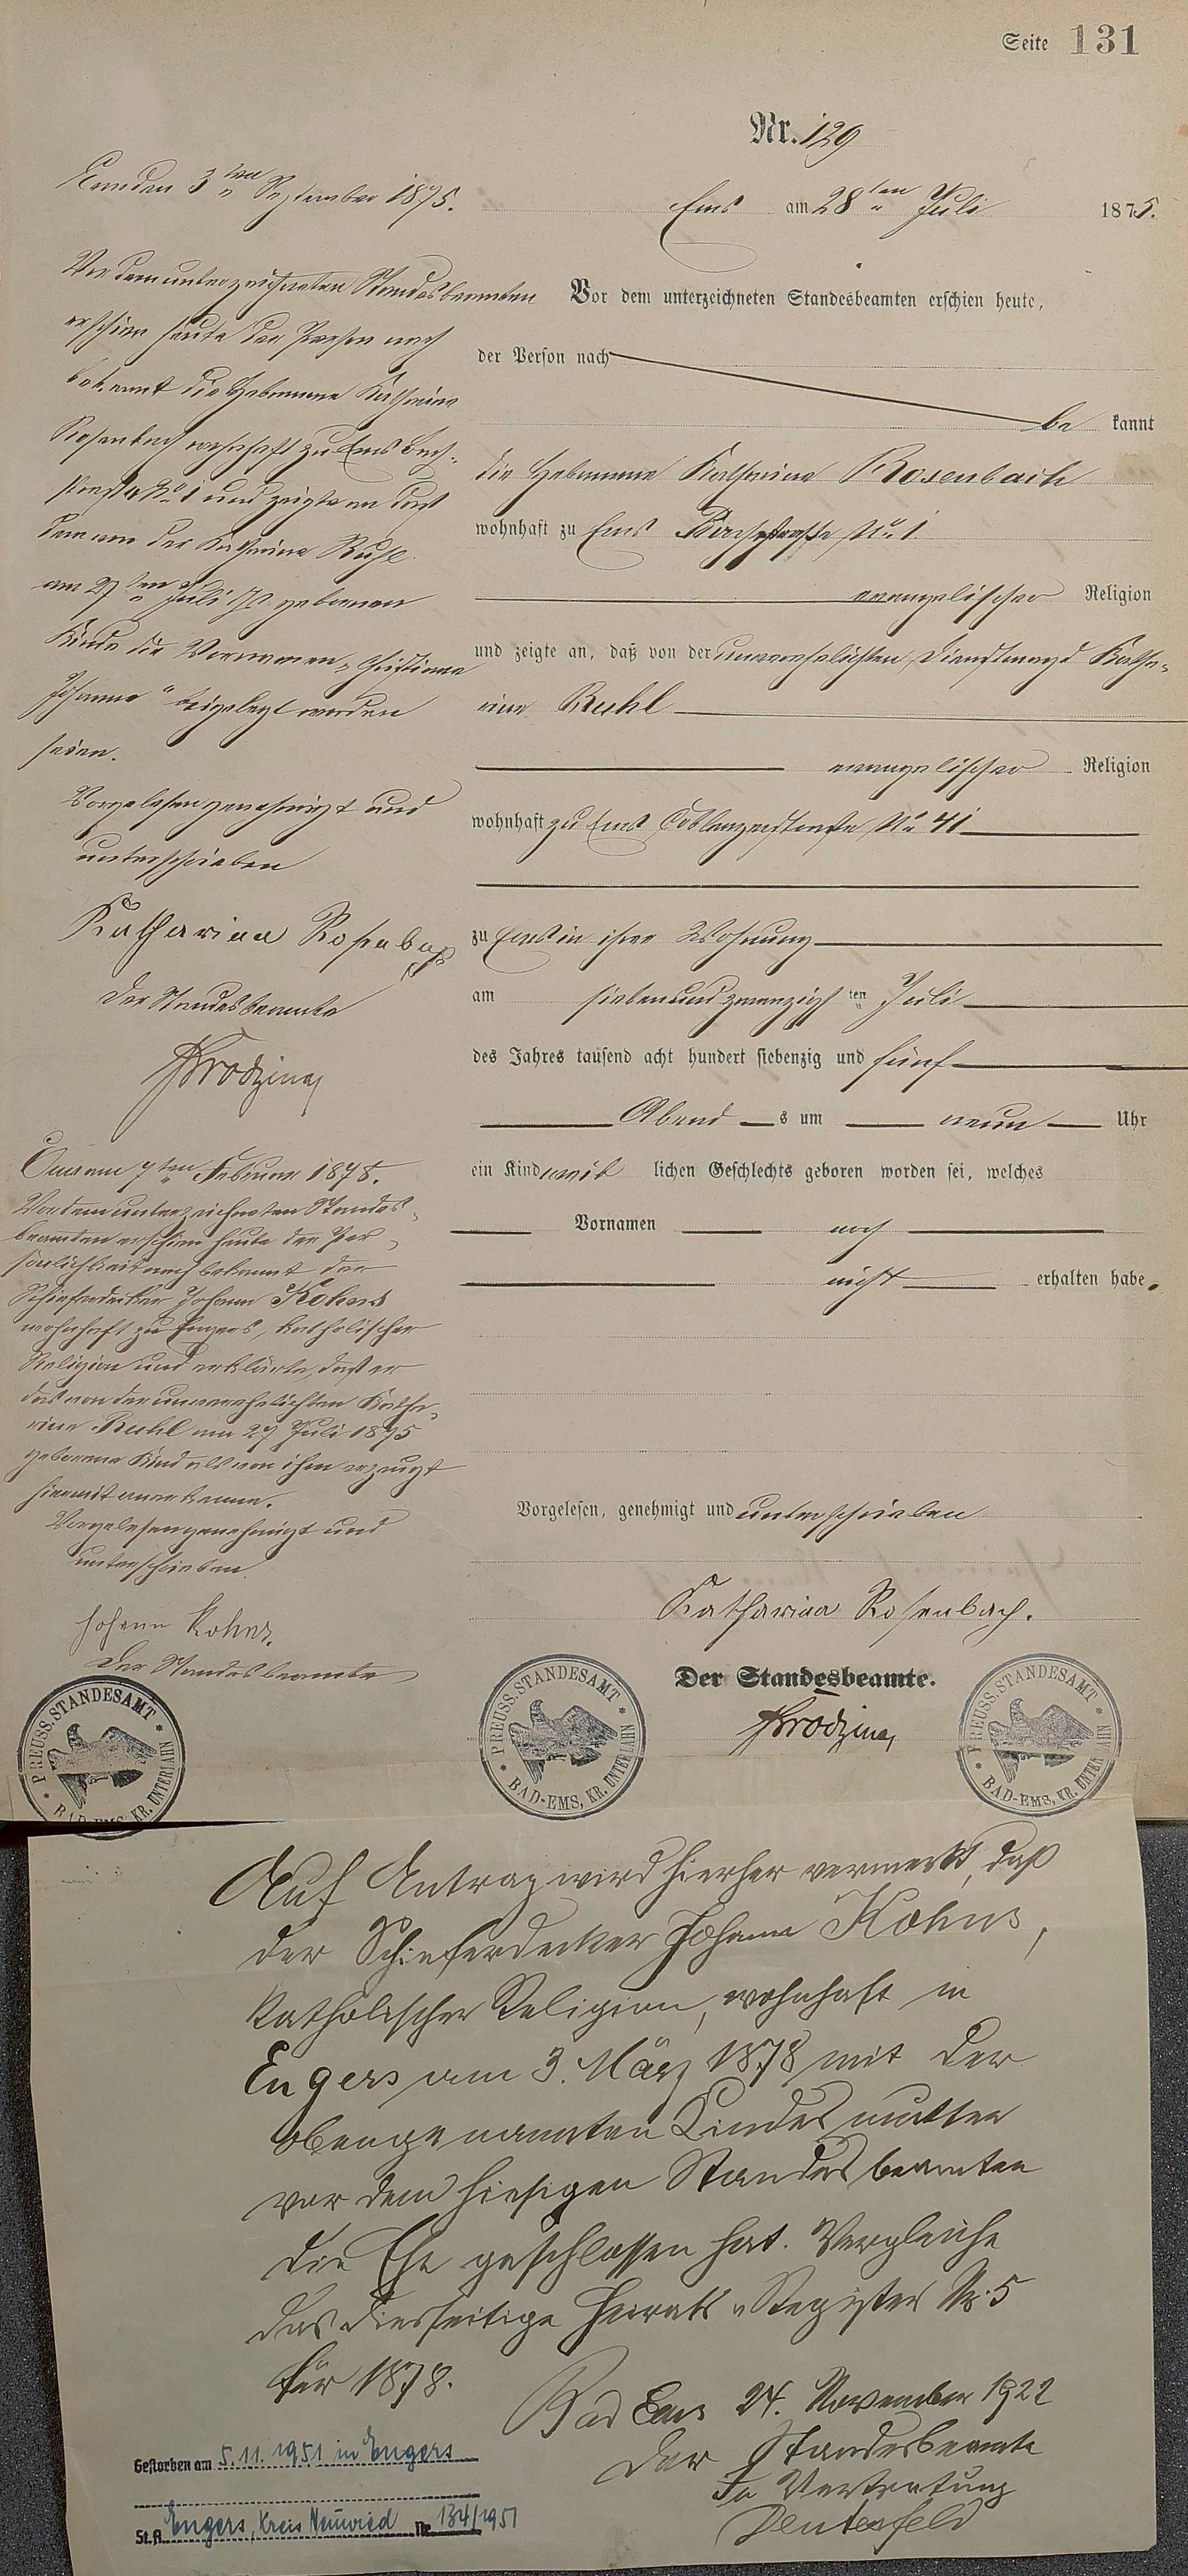 Seite 131
Nr. 129
Ems am 28ten Juli 1875.
Vor dem unterzeichneten Standesbeamten erschien heute,
der Person nach
be kannt
die Hebamme Katharina Rosenbach
wohnhaft zu Ems Bachstraße No 1
evangelischer Religion
und zeigte an, daß von der unverehelichten Dienstmagd Katha-
rina Ruhl
evangelischer Religion
wohnhaft zu Ems Coblenzerstraße No 41
zu Ems in ihrer Wohnung
am siebenundzwanzigsten Juli
des Jahres tausend acht hundert siebenzig und fünf
Abend s um neun Uhr
ein Kind weib lichen Geschlechts geboren worden sei, welches
Vornamen noch
nicht erhalten habe.
Vorgelesen, genehmigt und unterschrieben
Katharina Rosenbach.
Der Standesbeamte.
PREUSS. STANDESAMT * BAD-EMS, KR. UNTERLAHN *
PREUSS. STANDESAMT * BAD-EMS, KR. UNTERLAHN *
Ems den 3ten September 1875.
Vor dem unterzeichneten Standesbeamten
erschien heute der Person nach
bekannt die Hebamme Katharina
Rosenbach wohnhaft zu Ems Bach-
straße No 1 und zeigte an daß
dem von der Katharina Ruhl
am 27ten Juli gebornen
Kinde die Vornamen "Christiana
Johanna" beigelegt worden
seien.
Vorgelesen genehmigt und
unterschrieben
Katharina Rosenbach
Der Standesbeamte
Ems am 7ten Februar 1878.
Vor dem unterzeichneten Standes-
beamten erschien heute der Per-
sönlichkeit nach bekannt der
Schieferdecker Johann Kohns
wohnhaft zu Engers, katholischer
Religion und erklärte, daß er
das von der unverehelichten Katha-
rina Ruhl am 27 Juli 1875
geborene Kind als von ihm erzeugt
hiermit anerkenne.
Vorgelesen genehmigt und
unterschrieben.
Johann Kohns.
Der Standesbeamte
PREUSS. STANDESAMT * BAD-EMS, KR. UNTERLAHN *
Auf Antrag wird hierher vermerkt, daß
der Schieferdecker Johann Kohns,
katholischer Religion, wohnhaft in
Engers am 3. März 1878 mit der
obengenannten Kindesmutter
vor dem hiesigen Standesbeamten
die Ehe geschlossen hat. Vergleiche
das diesseitige Heirats-Register Nr. 5
für 1878.
Bad Ems 24. November 1922
Der Standesbeamte
In Vertretung
Deutesfeld
Gestorben am 5.11.1951 in Engers
St.A. Engers, Kreis Neuwied Nr. 134/1951